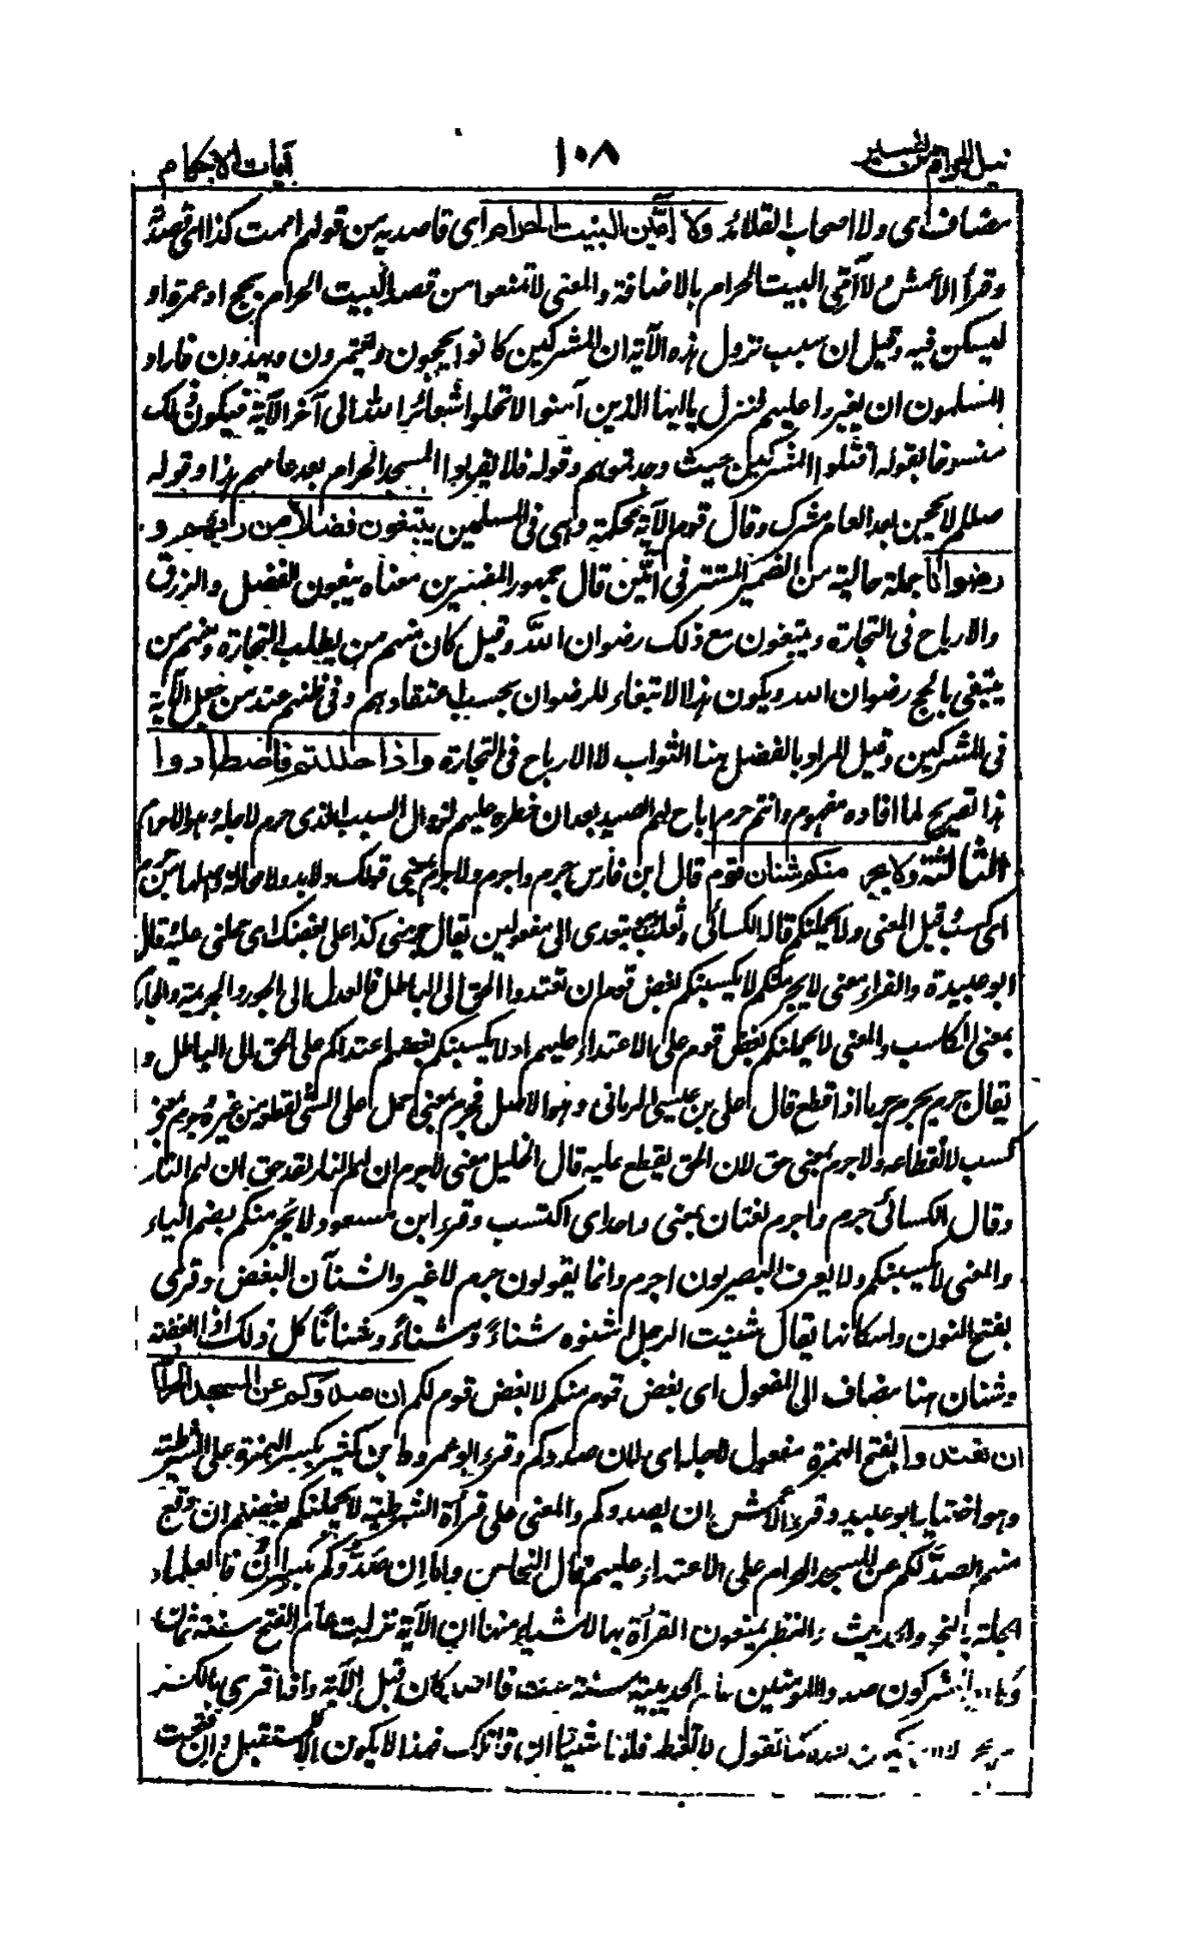 نيل المرام من تفسير ١٠٨ آيات الاحكام
مضاف اى ولا اصحاب القلائد ولا آمّين البيت الحرام اى قاصديه من قولهم اممت كذا اى قصدته
وقرأ الاعمش ولا آمّى البيت الحرام بالاضافة والمعنى لا تمنعوا من قصد البيت الحرام بحج او عمرة او
ليسكن فيه وقيل ان سبب نزول هذه الآية ان المشركين كانوا يحجون ويعتمرون ويهدون فاراد
المسلمون ان يغيروا عليهم فنزل يا ايها الذين آمنوا لا تحلوا شعائر الله الى آخر الآية فيكون ذلك
منسوخا بقوله اقتلوا المشركين حيث وجدتموهم وقوله فلا يقربوا المسجد الحرام بعد عامهم هذا وقوله
صللم لا يحجن بعد العام مشرك وقال قوم الآية محكمة وهى فى المسلمين يبتغون فضلا من ربهم و
رضوانا جملة حالية من الضمير المستتر فى آمّين قال جمهور المفسرين معناه يبغون الفضل والرزق
والارباح فى التجارة ويبتغون مع ذلك رضوان الله وقيل كان منهم من يطلب التجارة ومنهم من
يبتغى بالحج رضوان الله ويكون هذا الابتغاء للرضوان بحسب اعتقادهم وفى ظنهم عند من جعل الآية
فى المشركين وقيل المراد بالفضل هنا الثواب لا الارباح فى التجارة واذا حللتم فاصطادوا
هذا تصريح لما افاده مفهوم وانتم حرم اباح لهم الصيد بعد ان حظره عليهم لزوال السبب الذى حرم لاجله وهو الاحرام
الثالثة ولا يجرمنكم شنآن قوم قال ابن فارس جرم واجرم ولا جرم بمعنى قولك لا بد ولا محالة واصلها من جرم
اى كسب قيل المعنى ولا يحملنكم قاله الكسائى وثعلب يتعدى الى مفعولين يقال جرمنى كذا على بغضك اى حملنى عليه قال
ابو عبيدة والفراء معنى لا يجرمنكم لا يكسبنكم بغض قوم ان تعتدوا الحق الى الباطل والعدل الى الجور والجريمة والجارم
بمعنى الكاسب والمعنى لا يحملنكم بغض قوم على الاعتداء عليهم او لا يكسبنكم بغضهم اعتداءكم على الحق الى الباطل و
يقال جرم يجرم جرما اذا قطع قال على بن عيسى الرمانى وهو الاصل فجرم بمعنى حمل على الشئ لقطعه من غيره وجرم بمعنى
كسب لانقطاعه ولا جرم بمعنى حق لان الحق يقطع عليه قال الخليل معنى لا جرم ان لهم النار لقد حق ان لهم النار
وقال الكسائى جرم واجرم لغتان بمعنى واحد اى اكتسب وقرء ابن مسعود لا يُجرمنكم بضم الياء
والمعنى لا يكسبنكم ولا يعرف البصريون اجرم وانما يقولون جرم لا غير والشنآن البغض وقرئ
بفتح النون واسكانها يقال شنيت الرجل اشنوه شناءً ومشناءً وشنانًا كل ذلك اذا ابغضته
وشنان هنا مضاف الى المفعول اى بغض قوم منكم لا بغض قوم لكم ان صدوكم عن المسجد الحرام
ان تعتدوا بفتح الهمزة مفعول لاجله اى لان صدوكم وقرء ابو عمرو وابن كثير بكسر الهمزة على الشرطية
وهو اختيار ابو عبيد وقرء الاعمش ان يصدوكم والمعنى على قرأة الشرطية لا يحملنكم بغضهم ان وقع
منهم الصدّ لكم عن المسجد الحرام على الاعتداء عليهم قال النحاس واما ان صدّوكم بكسر ان فالعلماء
الجلة بالنحو والحديث والنظر يمنعون القرأة بها لاشياء منها ان الآية نزلت عام الفتح سنة ثمان
وكان المشركون صدوا المؤمنين عام الحديبية سنة ست فالصد كان قبل الآية واذا قرئ بالكسر
لم يجز ان يكون بعده كما تقول لا تعط فلانا شيئا ان قاتلك فهذا لا يكون الا للمستقبل وان فتحت